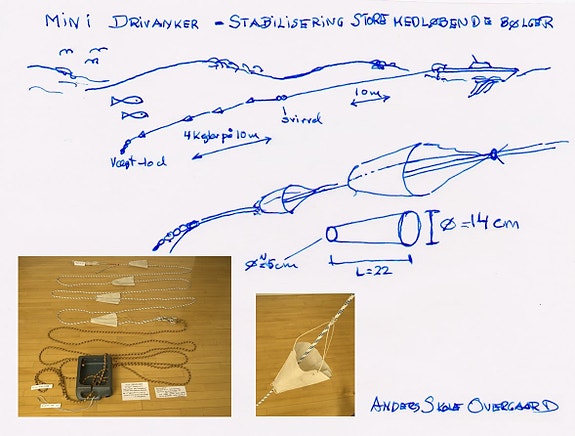 MINI DRIVANKER - STABILISERING STORE MEDLØBENDE BØLGER
10m
Svirvel
4 Kegler på 10m
Vægt-lod
Ø=14cm
Ø≈5cm
L=22
ANDERS SKOLE OVERGAARD